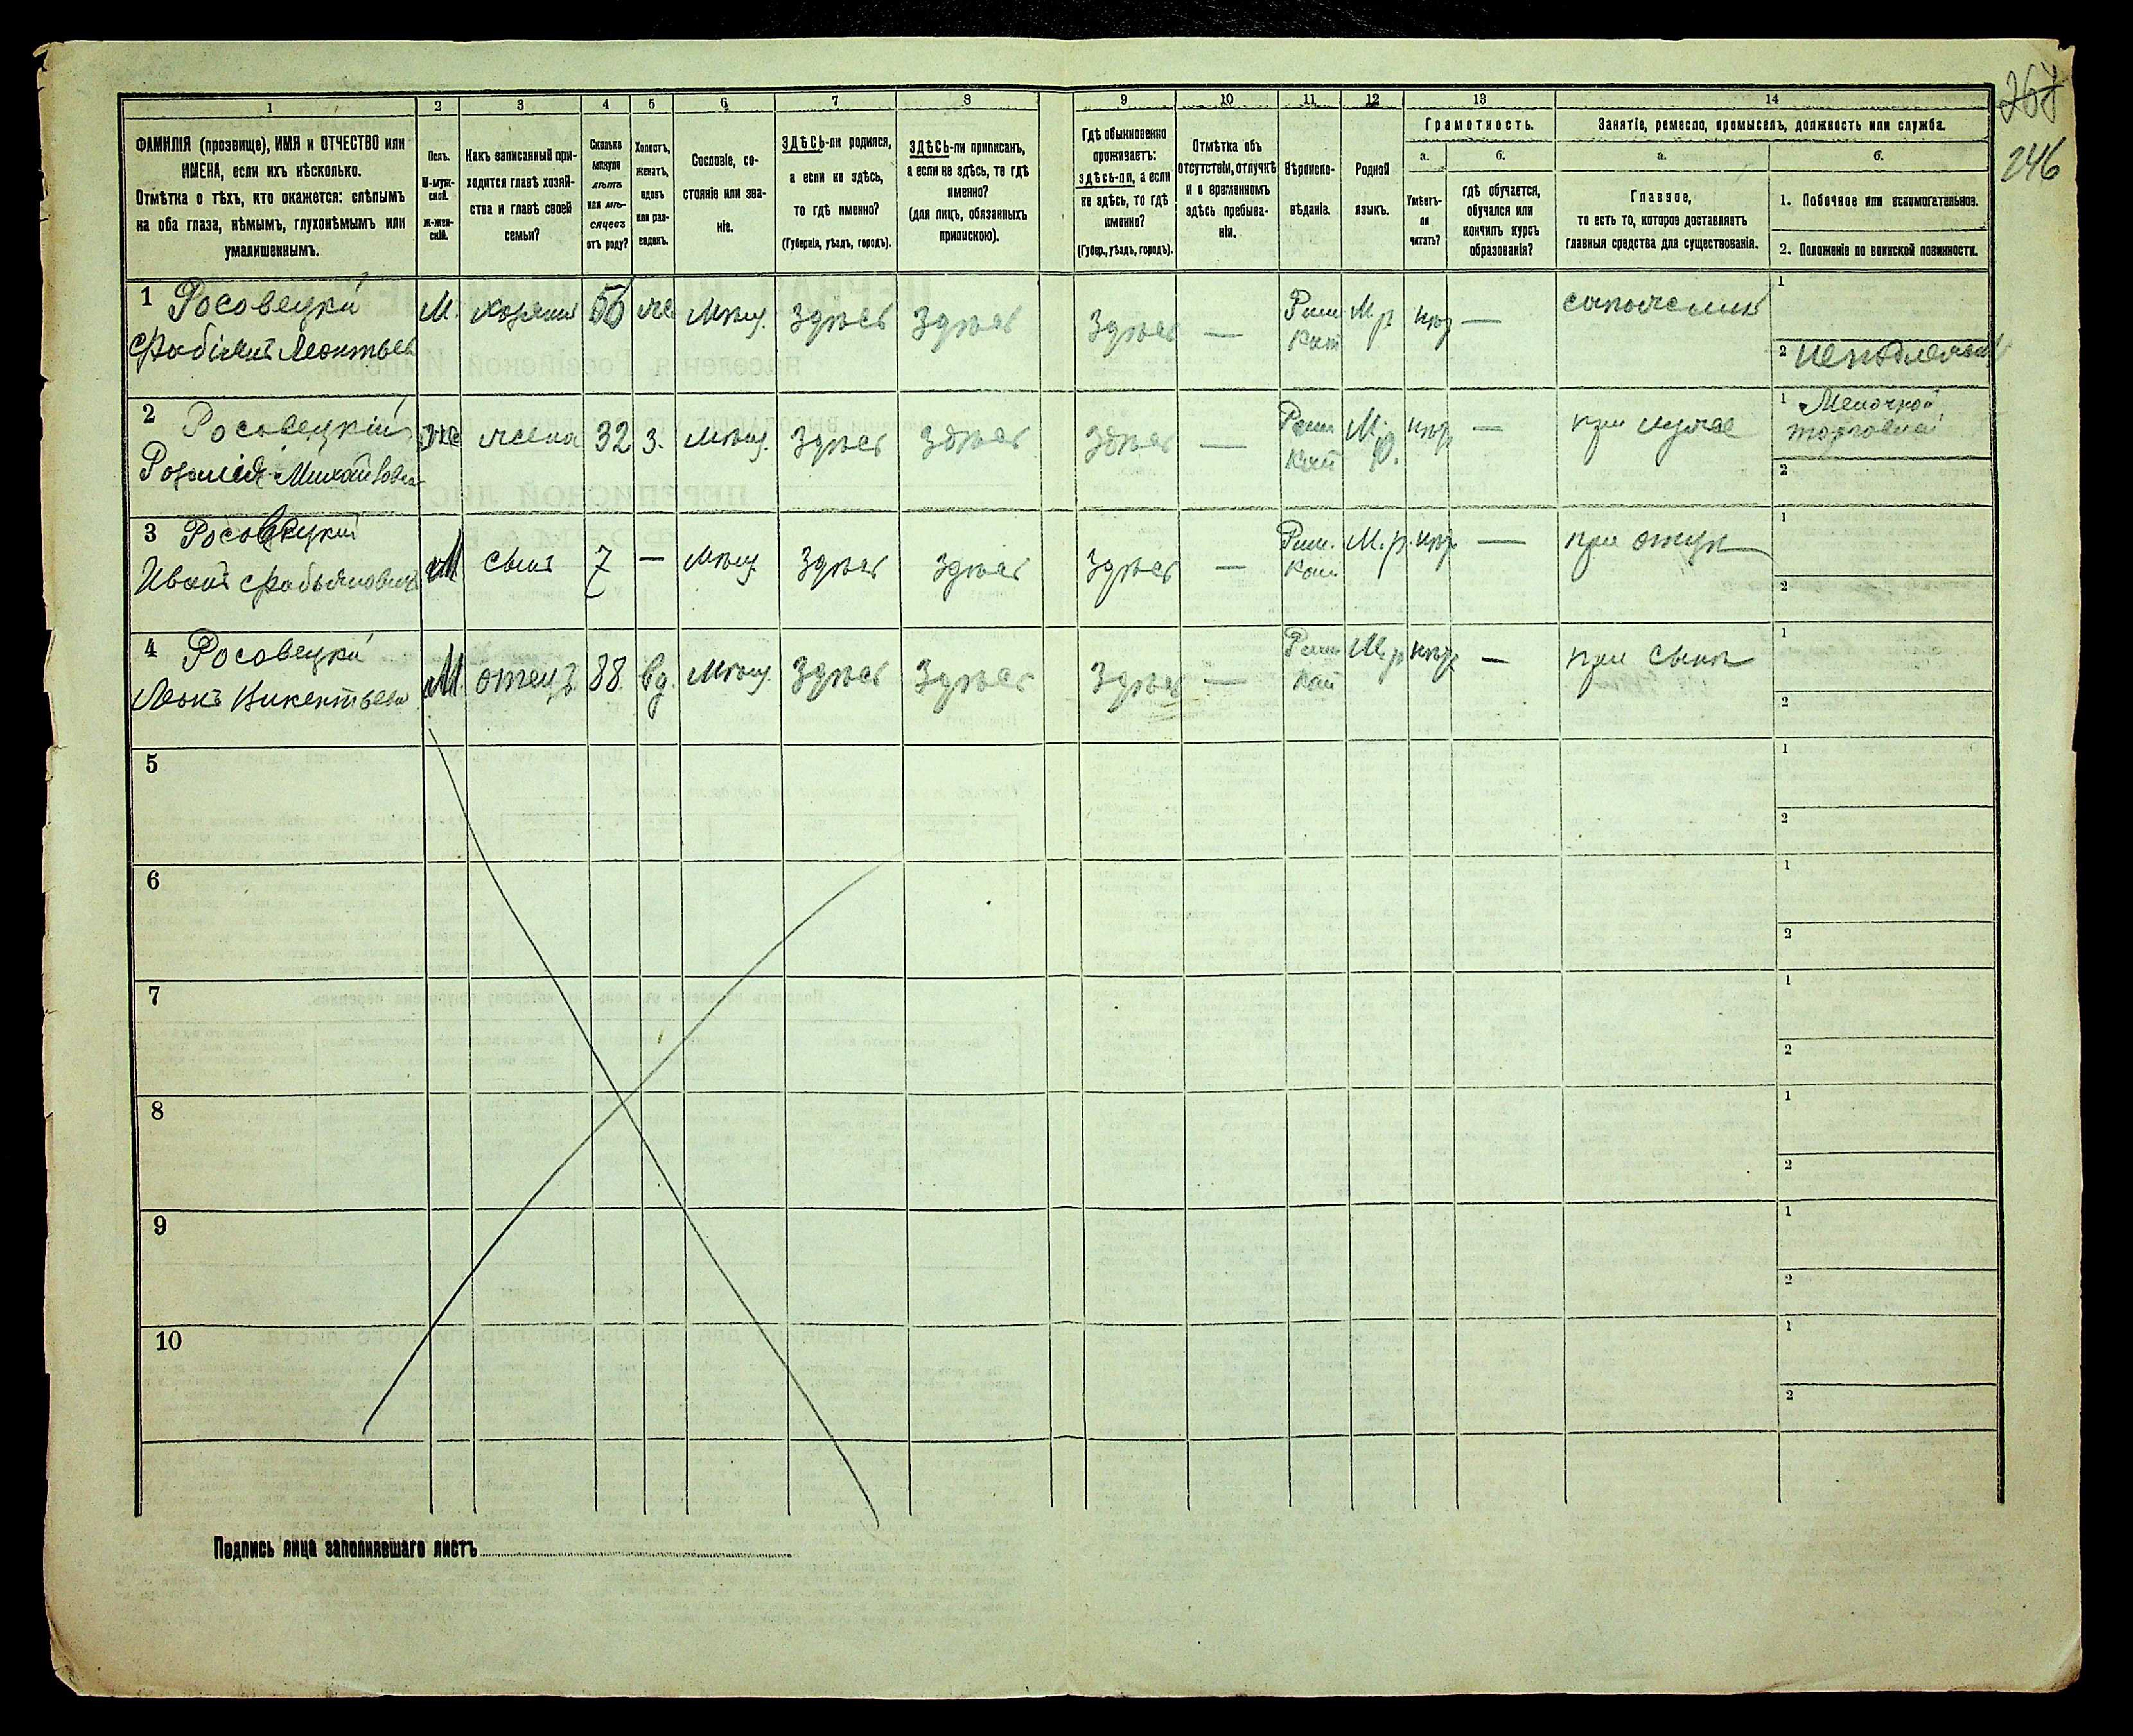 268
246
1 2 3 4 5 6 7 8 9 10 11 12 13 14
ФАМИЛІЯ (прозвище), ИМЯ и ОТЧЕСТВО или
ИМЕНА, если ихъ нѣсколько.
Отмѣтка о тѣхъ, кто окажется: слѣпымъ
на оба глаза, нѣмымъ, глухонѣмымъ или
умалишеннымъ.
Полъ.
М-муж-
ской.
Ж-жен-
скій.
Какъ записанный при-
ходится главѣ хозяй-
ства и главѣ своей
семьи?
Сколько
минуло
лѣтъ
или мѣ-
сяцевъ
отъ роду?
Холостъ,
женатъ,
вдовъ
или раз-
веденъ.
Сословіе, со-
стояніе или зва-
ніе.
ЗДѢСЬ-ли родился,
а если не здѣсь,
то гдѣ именно?
(Губернія, уѣздъ, городъ).
ЗДѢСЬ-ли приписанъ,
а если не здѣсь, то гдѣ
именно?
(для лицъ, обязанныхъ
припискою).
Гдѣ обыкновенно
проживаетъ:
здѣсь-ли, а если
не здѣсь, то гдѣ
именно?
(Губер., уѣздъ, городъ).
Отмѣтка объ
отсутствіи, отлучкѣ
и о временномъ
здѣсь пребыва-
ніи.
Вѣроиспо-
вѣданіе.
Родной
языкъ.
Грамотность.
а.
б.
Умѣетъ-
ли
читать?
гдѣ обучается,
обучался или
кончилъ курсъ
образованія?
Занятіе, ремесло, промыселъ, должность или служба.
а.
б.
Главное,
то есть то, которое доставляетъ
главныя средства для существованія.
1. Побочное или вспомогательное.
2. Положеніе по воинской повинности.
1 Росовецкій
Фабіянъ Леонтьев
М. хозяинъ 56 же Мѣщ. Здѣсь Здѣсь Здѣсь — Рим Кат М.р нѣт — сапожникъ
1
2
2 Росовецкій
Розалія Михайловна
Же жена 32 з. Мѣщ. Здѣсь Здѣсь Здѣсь — Рим Кат М.р. нѣт — при мужѣ
1 Мелочной
торговлей
2
3 Росовецкій
Иванъ Фабьяновичъ
М сынъ 7 — Мѣщ. Здѣсь Здѣсь Здѣсь — Рим. Кат. М.р. нѣт — при отцѣ
1
2
4 Росовецкій
Леонъ Викентьевъ
М. отецъ 88 вд. Мѣщ. Здѣсь Здѣсь Здѣсь — Рим Кат М.р нѣт — при сынѣ
1
2
5
1
2
6
1
2
7
1
2
8
1
2
9
1
2
10
1
2
Подпись лица заполнявшаго листъ